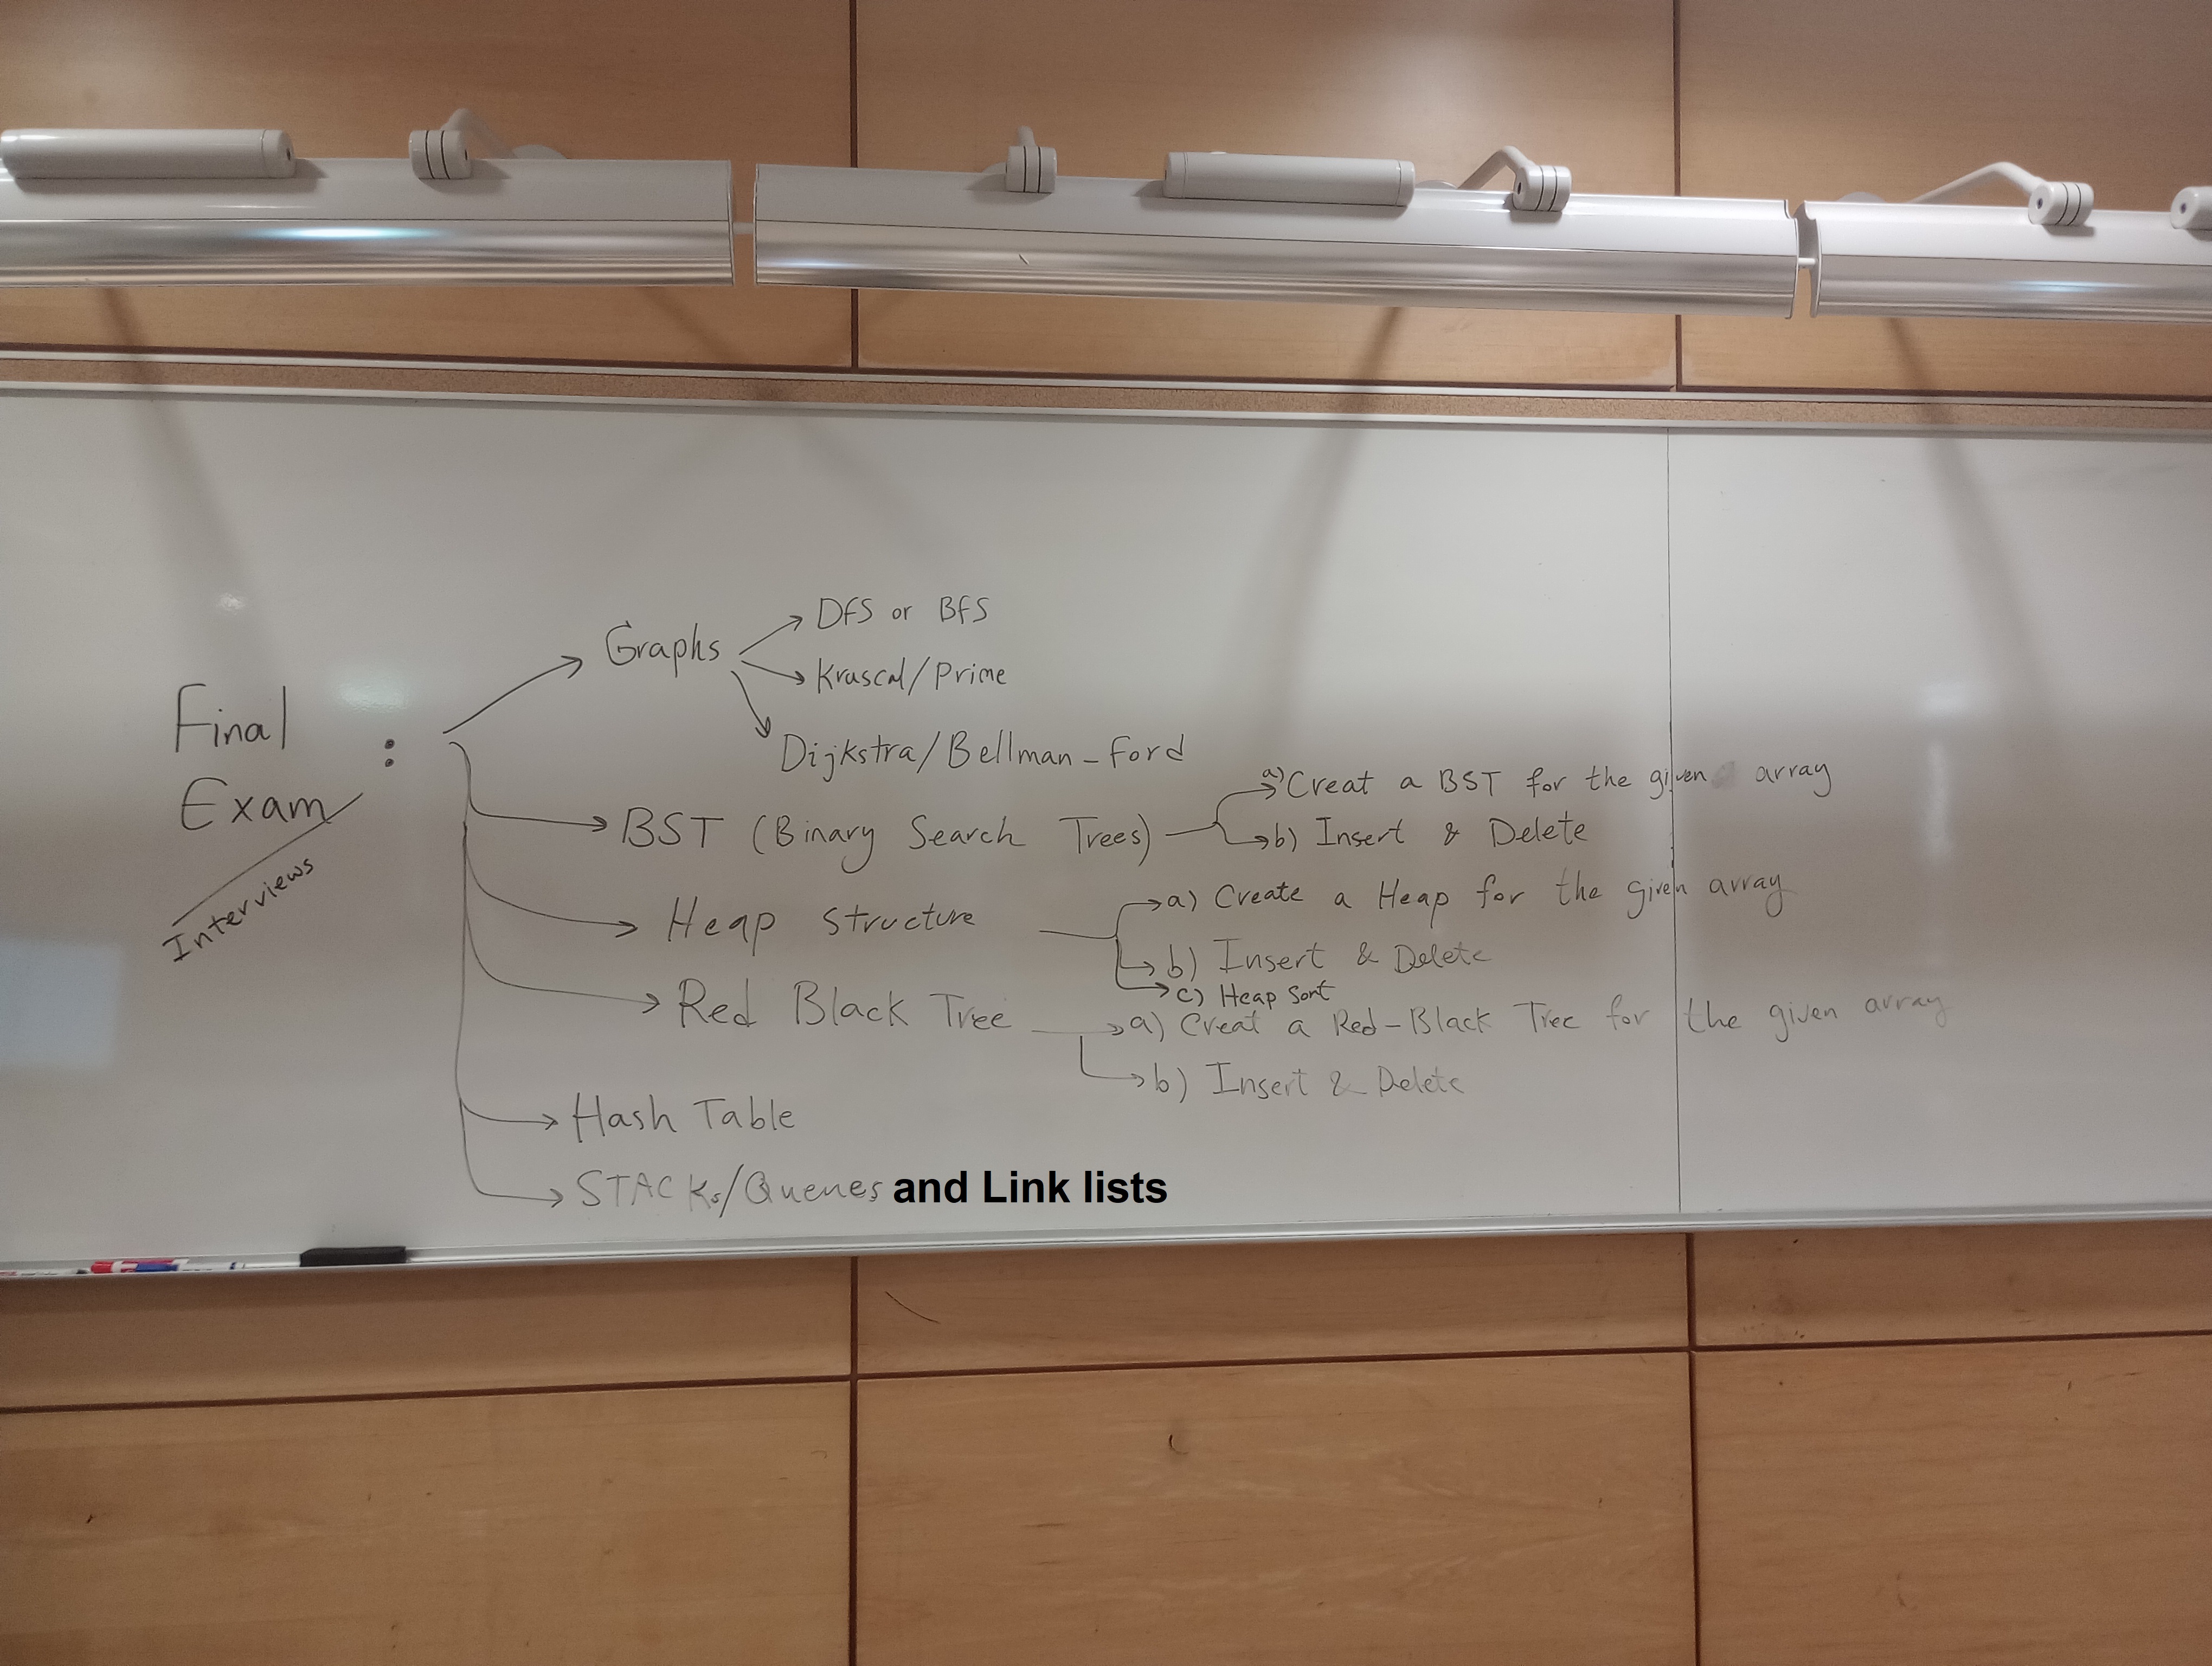 Final
Exam
:
Interviews
Graphs
DFS or BFS
Kruscal/Prime
Dijkstra/Bellman-Ford
BST (Binary Search Trees)
a) Creat a BST for the given array
b) Insert & Delete
Heap structure
a) Create a Heap for the given array
b) Insert & Delete
c) Heap Sort
Red Black Tree
a) Creat a Red-Black Tree for the given array
b) Insert & Delete
Hash Table
STACKs/Queues and Link lists